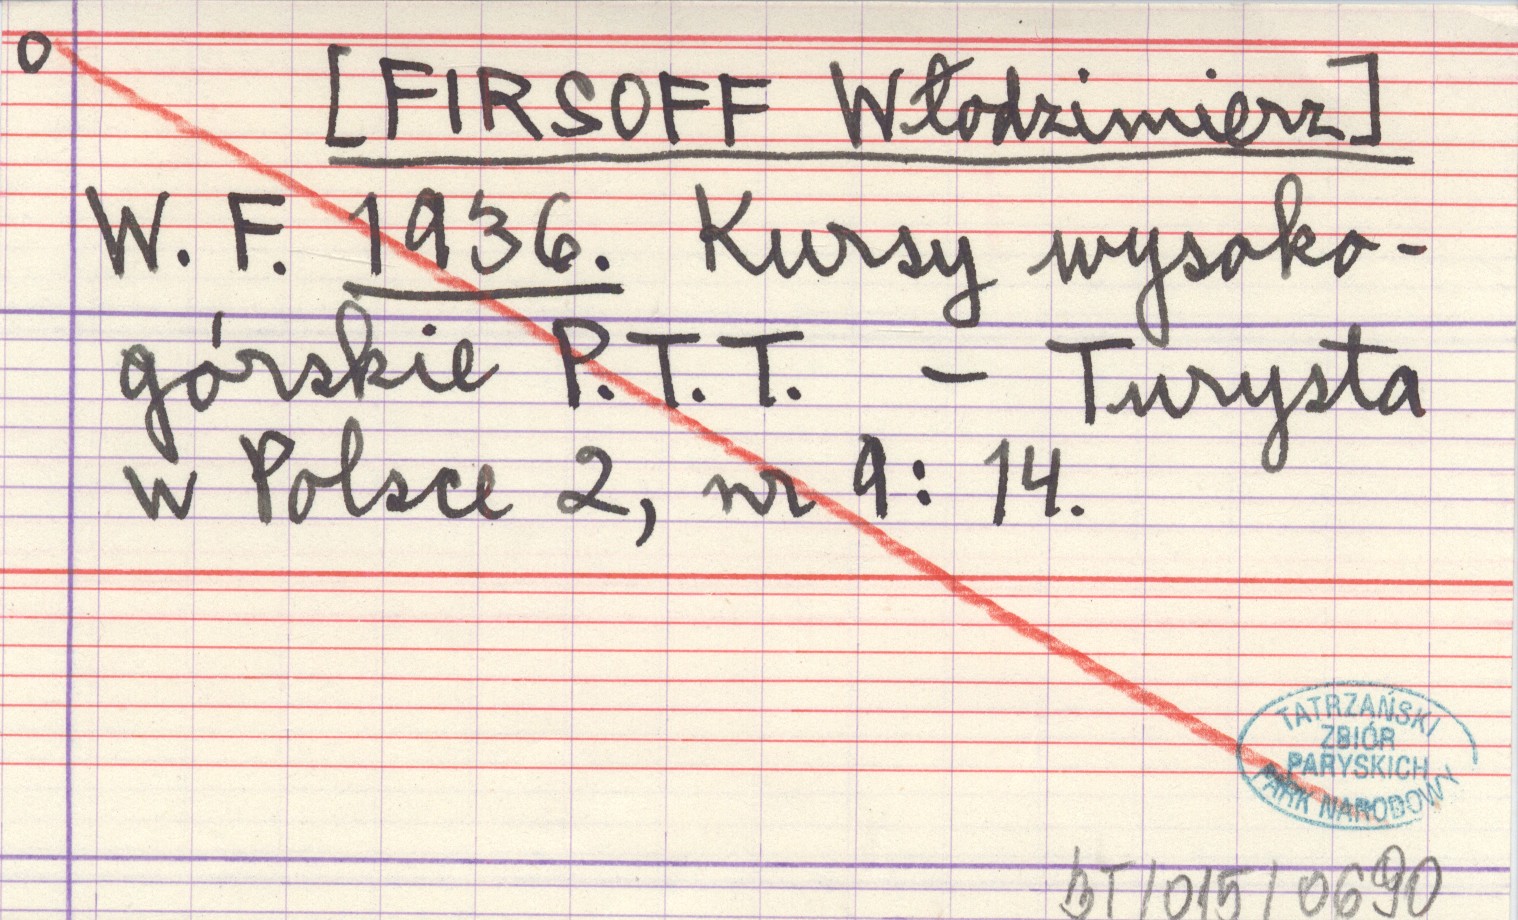 o
[FIRSOFF Włodzimierz]
W. F. 1936. Kursy wysoko-
górskie P.T.T. – Turysta
w Polsce 2, nr 9: 14.
TATRZAŃSKI
ZBIÓR
PARYSKICH
PARK NARODOWY
BT/015/0690